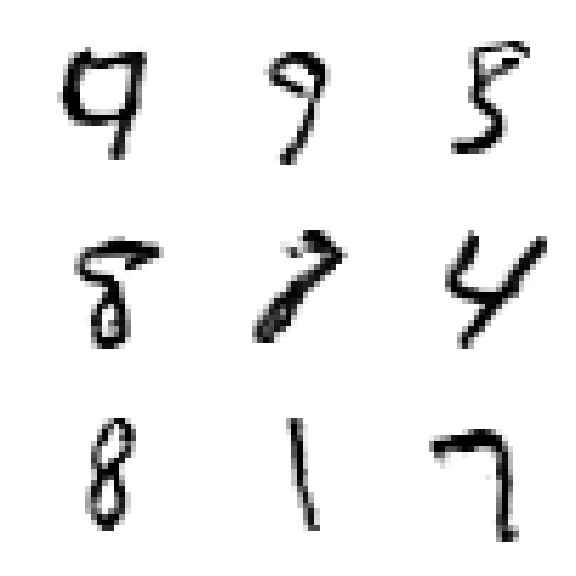 9 9 5
8 8 4
8 1 7